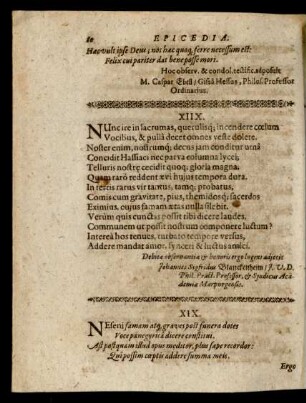 80 EPICEDIA.
Hac vult ipse Deus; nos hac quoq; ferre necessum est:
Felix cui pariter dat bene posse mori.
Hoc observ. & condol. testific. apposuit
M. Caspar Ebel; Gissâ Hessus, Philos. Professor
Ordinarius.
XIIX.
NUnc ire in lacrumas, querulisq; incendere cœlum
Vocibus, & pullâ decet omnes veste dolere.
Noster enim, nostrumq; decus jam conditur urnâ
Concidit Hassiaci nec parva columna lycei;
Telluris nostræ cecidit quoq; gloria magna.
Quam rarò reddent hujus tempora dura.
In testis rarus vir tamq; probatus,
Comis cum gravitate, pius, themidosq; sacerdos
Eximius, cujus famam ætas nulla silebit.
Verùm quis cunctas possit tibi dicere laudes,
Communem ut possit nostrum componere luctum?
Interea hos tenues, turbato tempore versus,
Addere mandat amor, synceri & luctus amici.
Debita observantia & honoris ergo lugens adjecit
Johannes Sigfridus Blanckenheim J. U. D.
Phil. Pract. Professor, & Syndicus Aca-
demiæ Marpurgensis.
XIX.
NEseni famam atq; graves post funera dotes
Voce panegyricâ dicere constitui.
Ast postquam istud opus meditor, plus sæpe recordor:
Qui possim cœptis addere summa meis.
Ergo